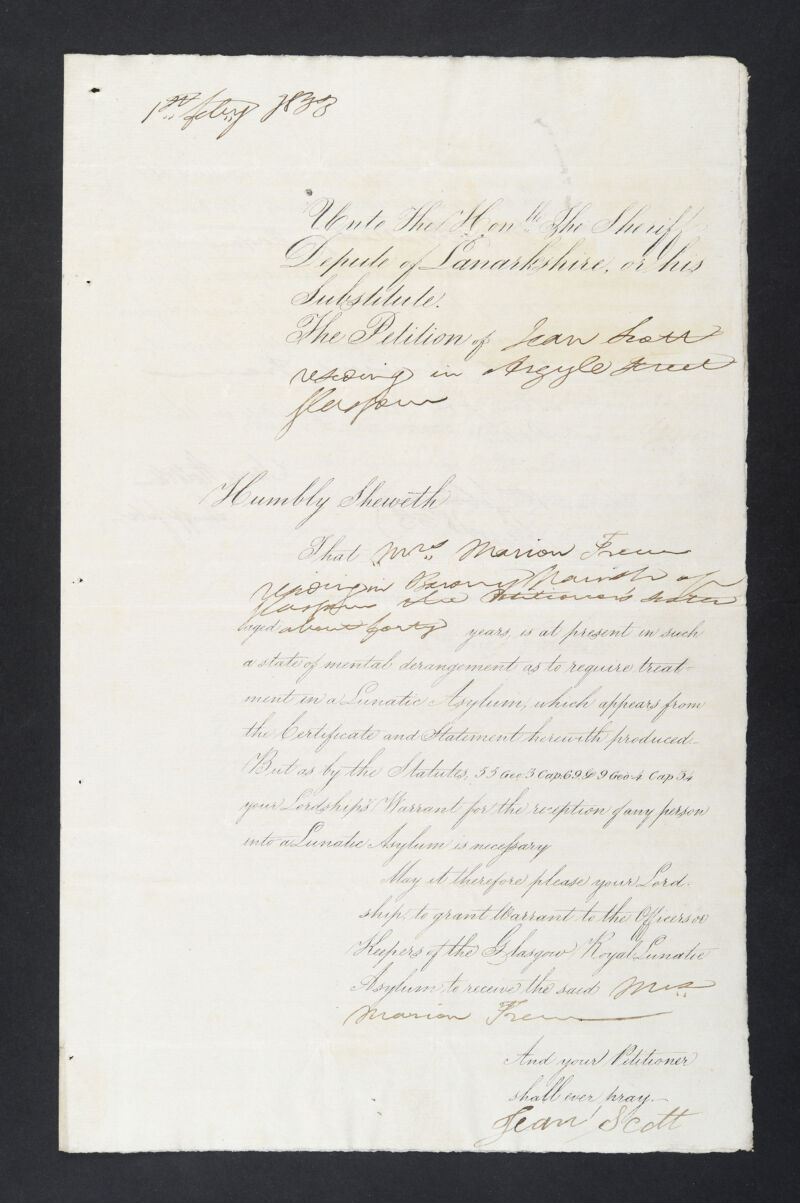 1st feby 1833
Unto The Honble The Sheriff
Depute of Lanarkshire, or his
Substitute.
The Petition of Jean Scott
residing in Argyle Street
Glasgow
Humbly Sheweth
That Mrs Marion Frew
residing in Barony Parish of
Glasgow the Petitioner's sister
aged about forty years, is at present in such
a state of mental derangement as to require treat-
ment in a Lunatic Asylum, which appears from
the Certificate and Statement herewith produced.
But as by the Statutes, 55 Geo 3 Cap 69 & 9 Geo 4 Cap 34
your Lordship's Warrant for the reception of any person
into a Lunatic Asylum is necessary
May it therefore please your Lord-
ship, to grant Warrant to the Officers or
Keepers of the Glasgow Royal Lunatic
Asylum to receive the said Mrs
Marion Frew
And your Petitioner
shall ever pray.
Jean Scott